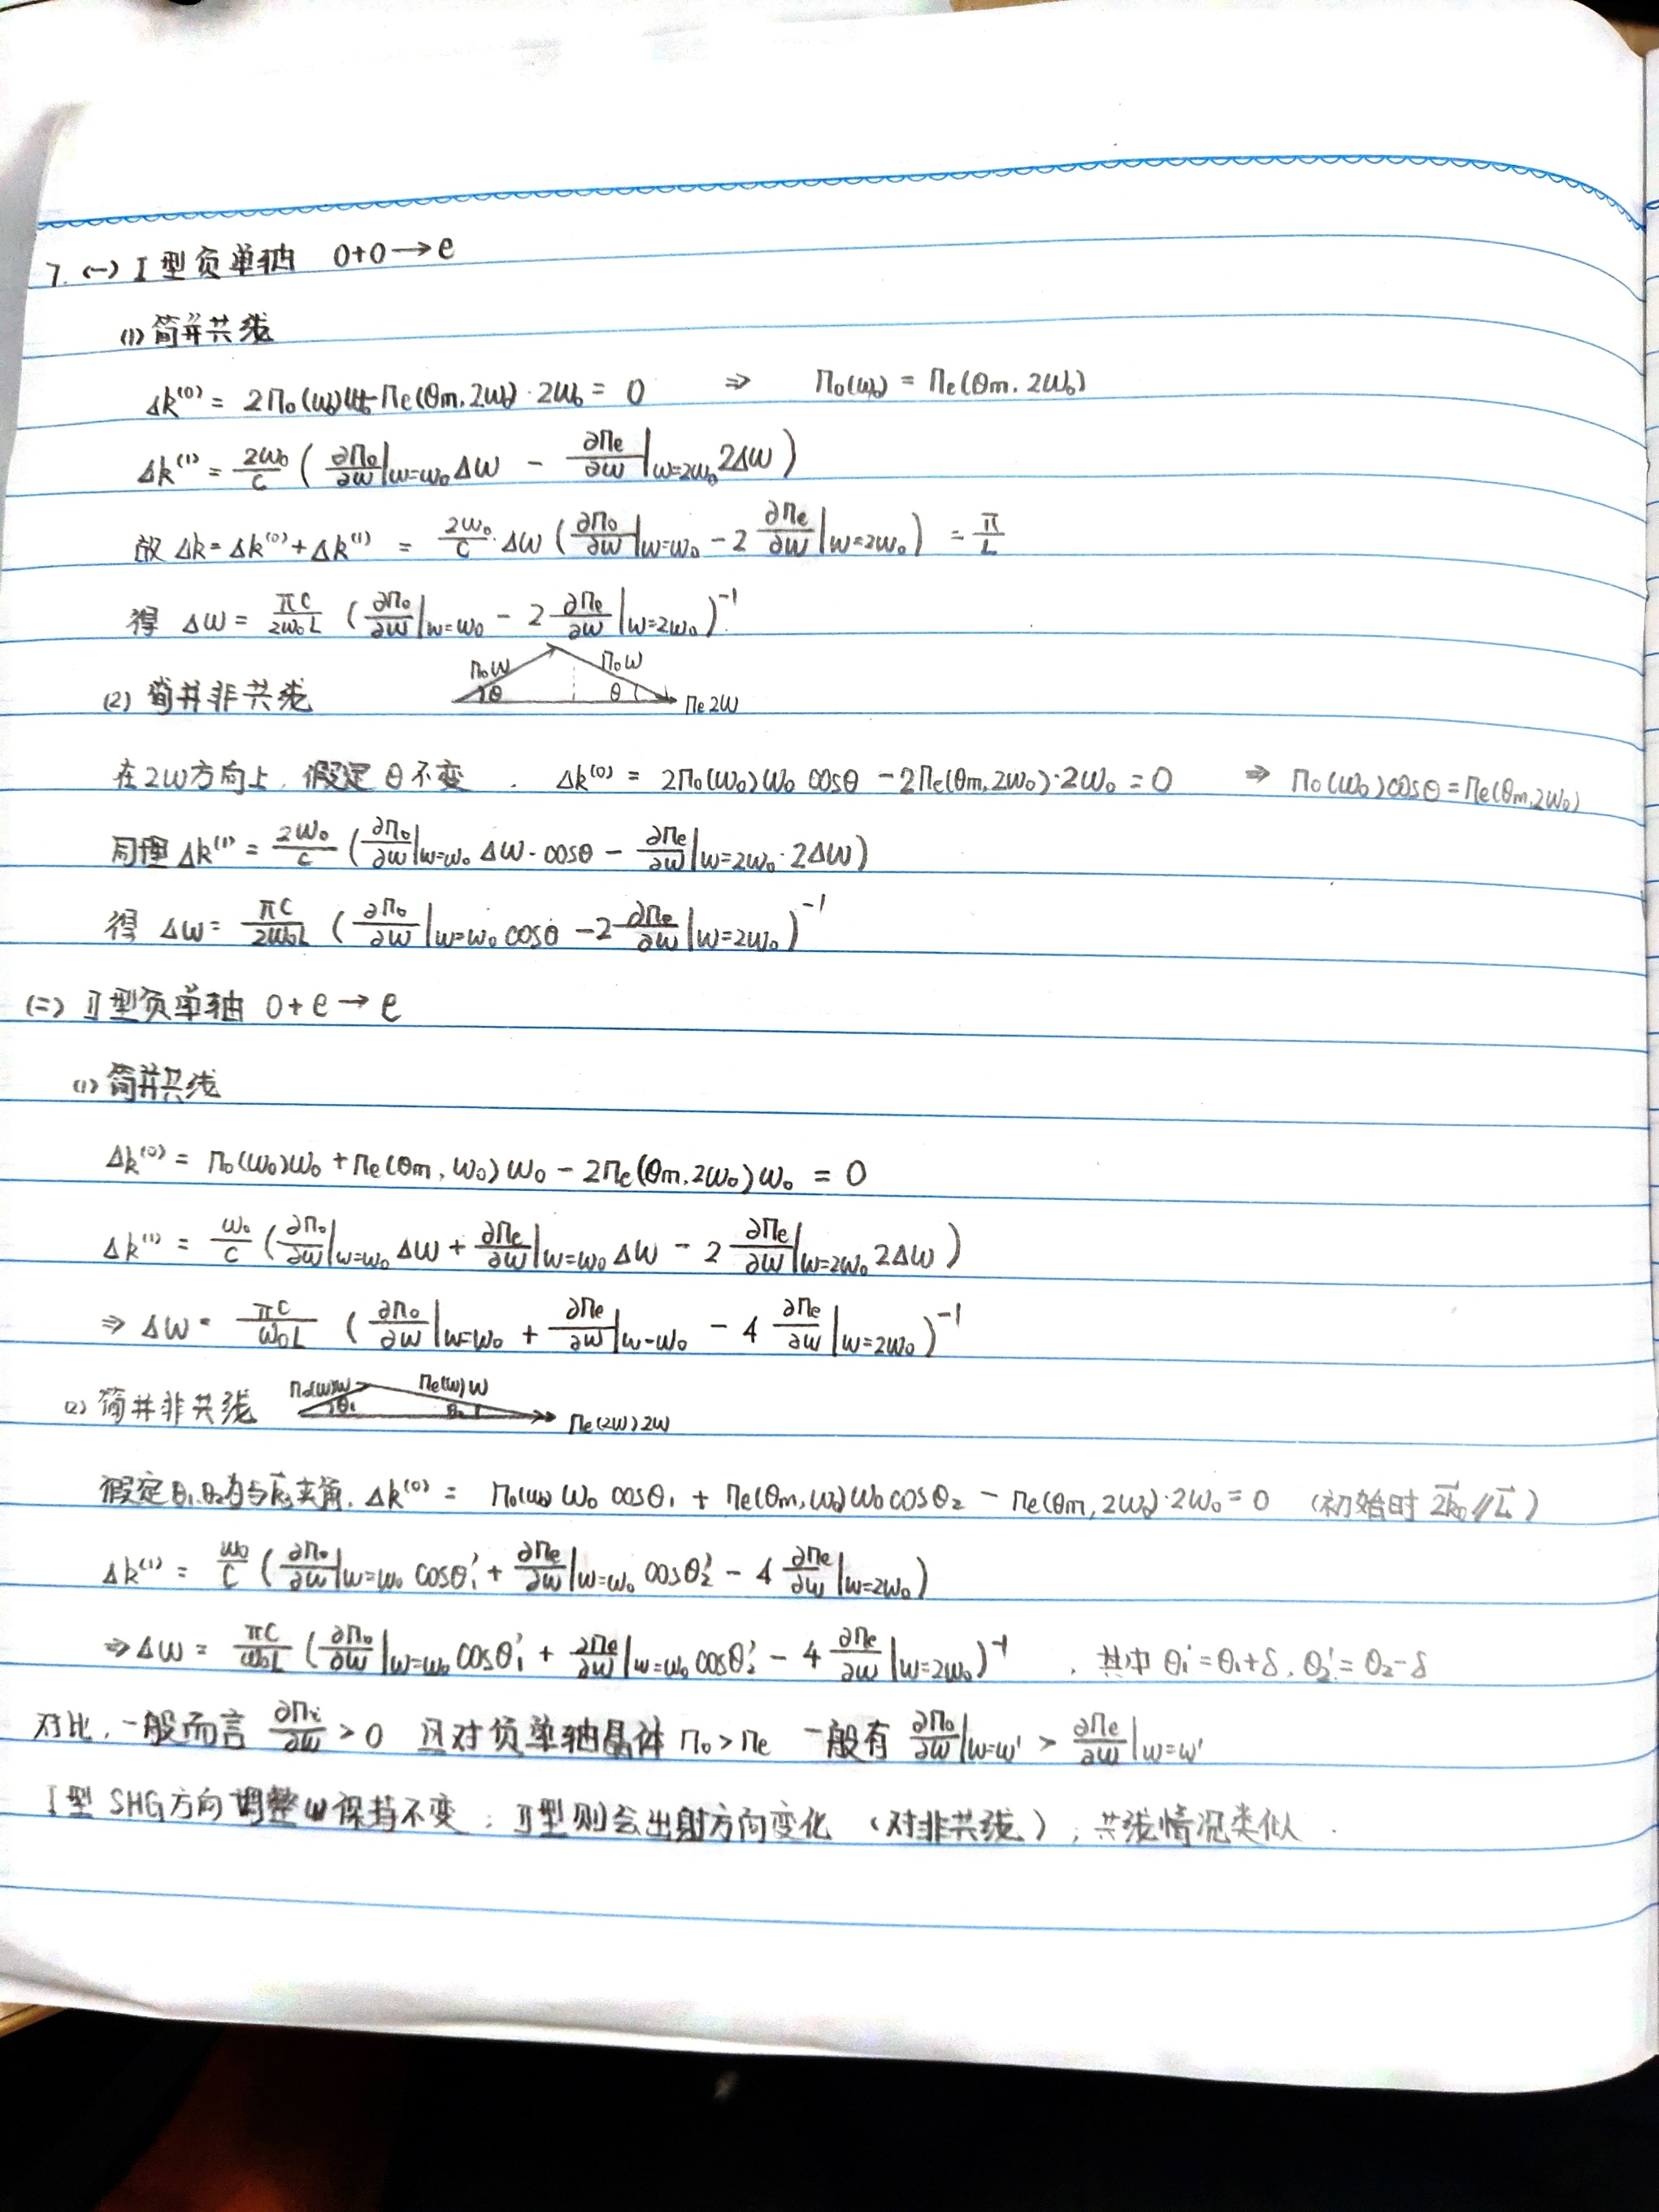 7. (一) I型负单轴 o+o→e
(1) 简并共线
Δk⁽⁰⁾ = 2n₀(ω₀)ω₀ - nₑ(θm, 2ω₀)·2ω₀ = 0 ⇒ n₀(ω₀) = nₑ(θm, 2ω₀)
Δk⁽¹⁾ = 2ω₀/c (∂n₀/∂ω|ω=ω₀ Δω - ∂nₑ/∂ω|ω=2ω₀ 2Δω)
故 Δk = Δk⁽⁰⁾ + Δk⁽¹⁾ = 2ω₀/c · Δω (∂n₀/∂ω|ω=ω₀ - 2 ∂nₑ/∂ω|ω=2ω₀) = π/L
得 Δω = πc/2ω₀L (∂n₀/∂ω|ω=ω₀ - 2 ∂nₑ/∂ω|ω=2ω₀)⁻¹
(2) 简并非共线 n₀ω θ n₀ω θ nₑ2ω
在2ω方向上, 假定θ不变. Δk⁽⁰⁾ = 2n₀(ω₀)ω₀ cosθ - 2nₑ(θm, 2ω₀)·2ω₀ = 0 ⇒ n₀(ω₀)cosθ = nₑ(θm, 2ω₀)
同理 Δk⁽¹⁾ = 2ω₀/c (∂n₀/∂ω|ω=ω₀ Δω·cosθ - ∂nₑ/∂ω|ω=2ω₀ · 2Δω)
得 Δω = πc/2ω₀L (∂n₀/∂ω|ω=ω₀ cosθ - 2 ∂nₑ/∂ω|ω=2ω₀)⁻¹
(二) II型负单轴 o+e→e
(1) 简并共线
Δk⁽⁰⁾ = n₀(ω₀)ω₀ + nₑ(θm, ω₀)ω₀ - 2nₑ(θm, 2ω₀)ω₀ = 0
Δk⁽¹⁾ = ω₀/c (∂n₀/∂ω|ω=ω₀ Δω + ∂nₑ/∂ω|ω=ω₀ Δω - 2 ∂nₑ/∂ω|ω=2ω₀ 2Δω)
⇒ Δω = πc/ω₀L (∂n₀/∂ω|ω=ω₀ + ∂nₑ/∂ω|ω=ω₀ - 4 ∂nₑ/∂ω|ω=2ω₀)⁻¹
(2) 简并非共线 n₀(ω)ω θ₁ nₑ(ω)ω θ₂ nₑ(2ω)2ω
假定θ₁,θ₂为与k⃗₃夹角. Δk⁽⁰⁾ = n₀(ω₀)ω₀ cosθ₁ + nₑ(θm, ω₀)ω₀ cosθ₂ - nₑ(θm, 2ω₀)·2ω₀ = 0 (初始时 2k⃗₀ // L⃗)
Δk⁽¹⁾ = ω₀/c (∂n₀/∂ω|ω=ω₀ cosθ₁' + ∂nₑ/∂ω|ω=ω₀ cosθ₂' - 4 ∂nₑ/∂ω|ω=2ω₀)
⇒ Δω = πc/ω₀L (∂n₀/∂ω|ω=ω₀ cosθ₁' + ∂nₑ/∂ω|ω=ω₀ cosθ₂' - 4 ∂nₑ/∂ω|ω=2ω₀)⁻¹, 其中 θ₁' = θ₁+δ, θ₂' = θ₂-δ
对比, 一般而言 ∂nᵢ/∂ω > 0 且对负单轴晶体 n₀ > nₑ 一般有 ∂n₀/∂ω|ω=ω' > ∂nₑ/∂ω|ω=ω'
I型 SHG方向调整ω保持不变; II型则会出射方向变化 (对非共线), 共线情况类似.